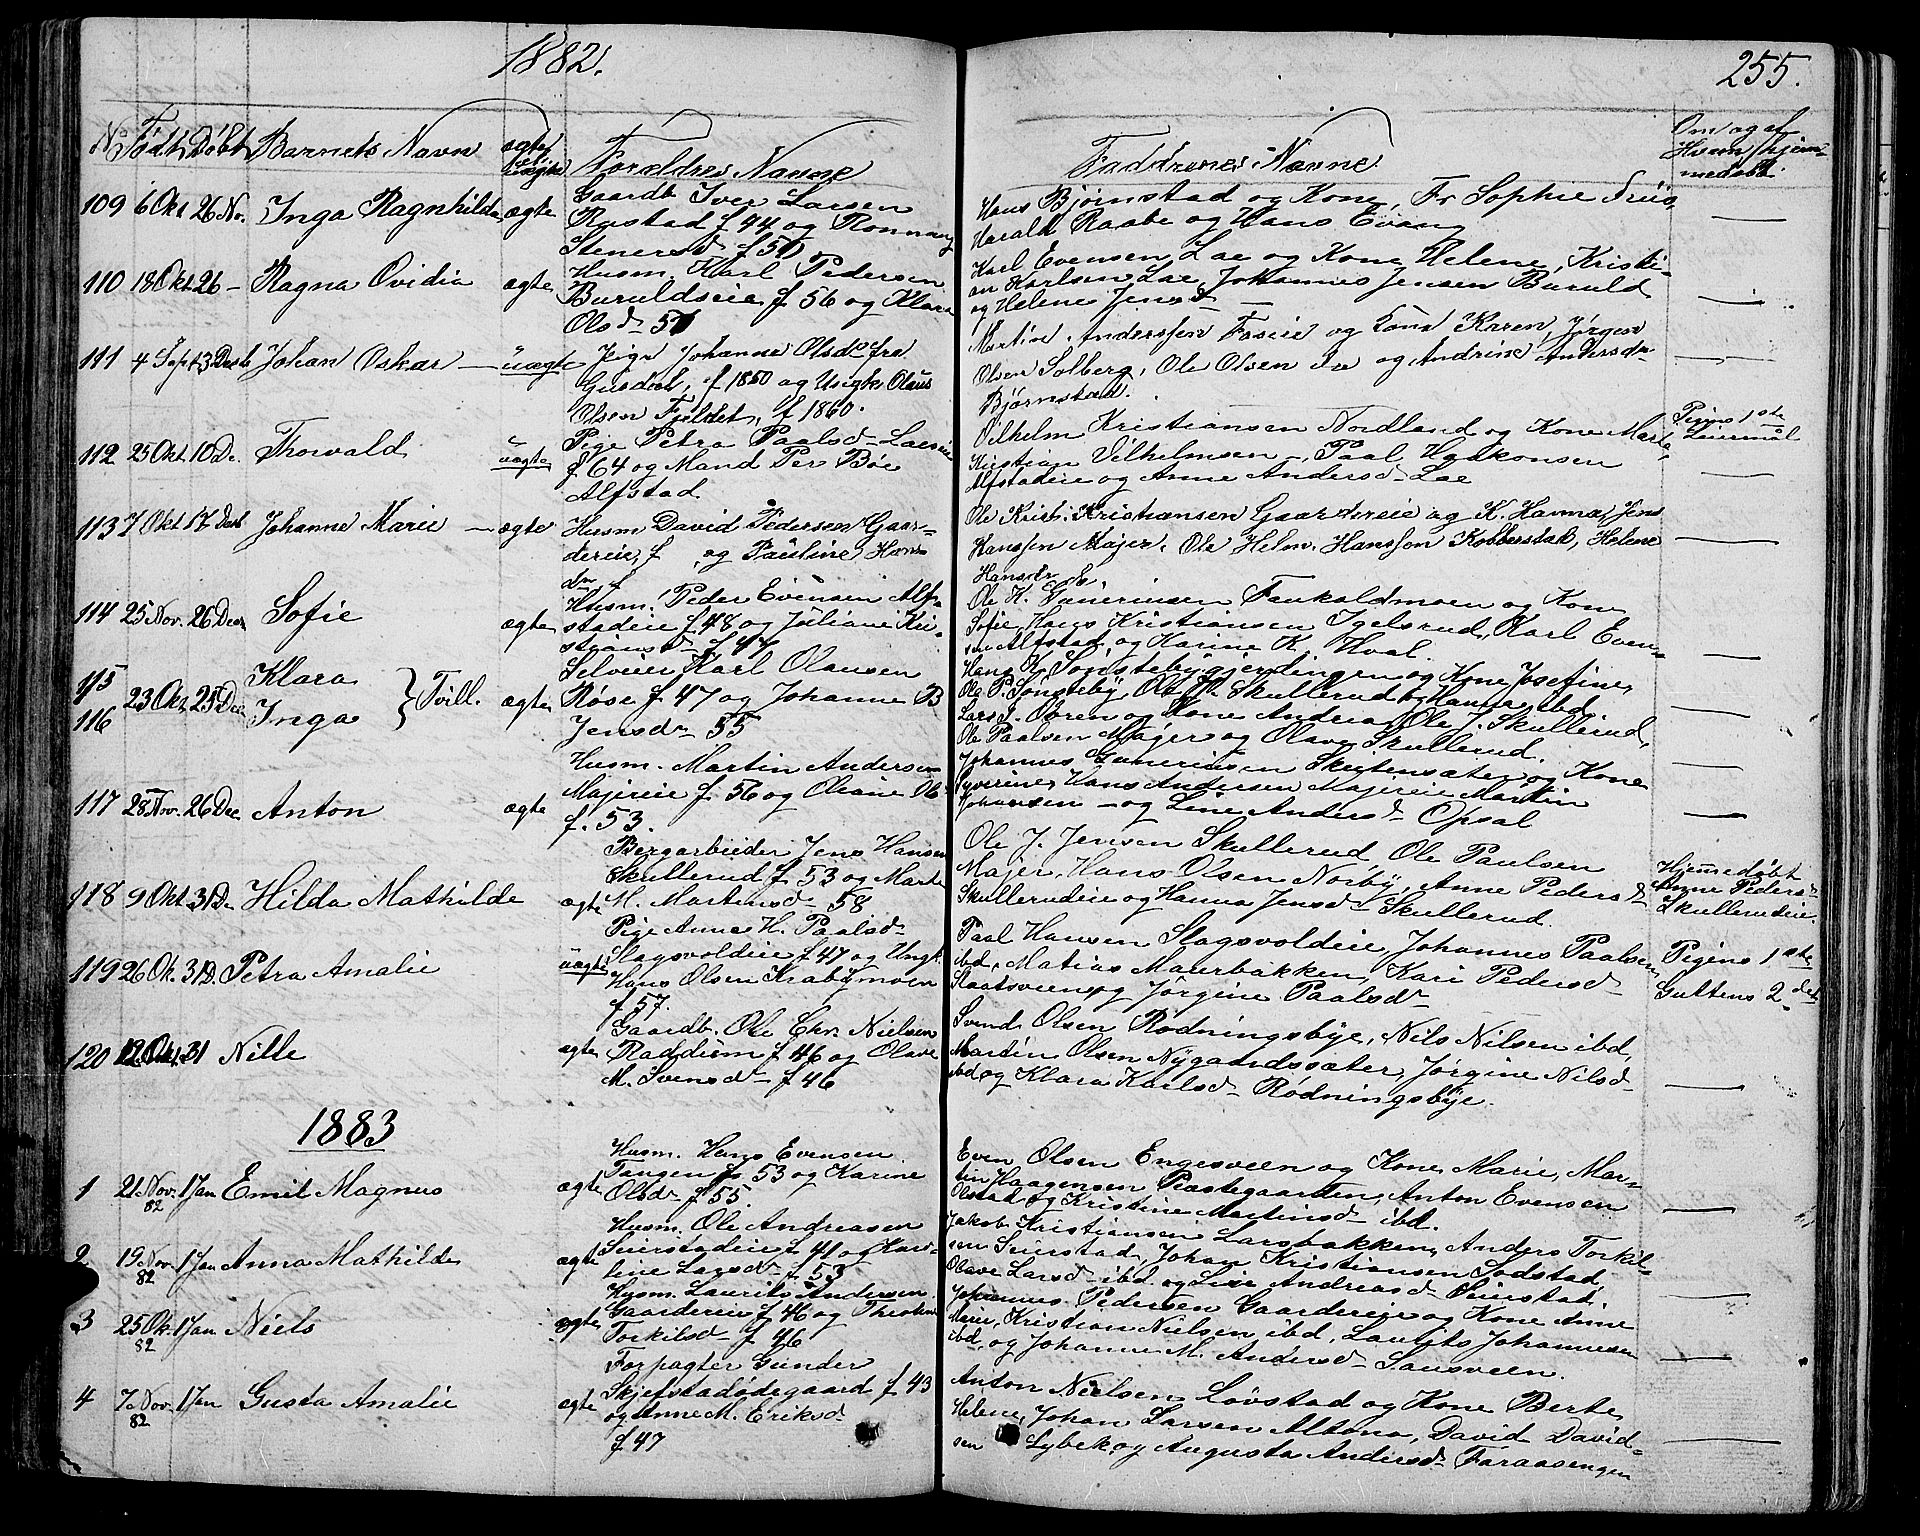 1882.
255.
No Født Døbt Barnets Navn ægte el. uægte Forældres Navne
Faddrenes Navne
Om og af Hvem hjemmedøbt
109 6 Okt 26 No. Inga Ragnhilda ægte
Gaardb. Iver Larsen
Rustad f 44 og Ronnaug
Stenersd f. 50
Hans Bjørnstad og Kone, Fr. Sophie
Harald Raabe og Hans Evang
110 18 Okt 26 – Ragna Ovidia ægte
Husm. Karl Pedersen
Buruldseie f 56 og Klara
Olsd 57
Karl Evensen Lae og Kone Helene, Kristi-
an Karlsen Lae, Johannes Jensen Buruld
og Helene Jensd
111 4 Sept 3 Desb Johan Oskar – uægte
Pige Johanne Olsd fra
Gusdal, f 1850 og Ungk. Olaus
Olsen Fjeldet, f 1860.
Martin Anderssen Faseie og Kone Karen, Jørgen
Olsen Solberg, Ole Olsen og Andrine Andersdr
Bjørnstad.
112 25 Okt 10 De. Thorvald uægte
Pige Petra Paalsd Laeseie
f 64 og Mand Per Bøe
Alfstad.
Vilhelm Kristiansen Nordland og Kone Marta,
Kristian Vilhelmsen –, Paal Haakonsen
Alfstadeie og Anne Andersd Lae
Pigens 1ste
Leiermål
113 7 Okt 17 Desb Johanne Marie – ægte
Husm David Pedersen Gaar-
dereie, f , og Pauline Hans-
dr f
Ole Krist. Kristiansen Gaardereie og K. Hanna, Jens
Hanssen Majer, Ole Helm. Hansson Kobberstad, Helene
Hansdr
114 25 Nov. 26 Decr Sofie ægte
Husm. Peder Evensen Alf-
stadeie f 48 og Juliane Kri-
stiansd f 44
Ole K. Gunerinsen Faukaldmoen og Kone
Sofie, Hans Kristiansen Igelsrud, Karl Even-
sen Alfstad, og Karine K. Hval
115 116 23 Okt 25 Dec Klara Inga } Tvill. ægte
Selveier Karl Olausen
Røse f 47 og Johanne B
Jensdr 55
Ole P. Sønsteby, Ole H. Skullerud og Hanne ibd
Lars J. Obren og Kone Andrea, Ole J. Skullerud,
Ole Paalsen Majer og Olave Skullerud.
117 28 Nov. 26 Dec. Anton ægte
Husm. Martin Andersen
Majereie f 56 og Oliane Ol-
f. 53.
Johannes Gunerinsen Skutensæter og Kone
Syverine, Hans Andersen Majereie, Martin
Johansen – og Line Andersd Opsal
118 9 Okt. 31 De Hilda Mathilde ægte
Bergarbeider Jens Hansen
Skullerud f 53 og Marte
M. Martinsd 58
Ole J. Jensen Skullerud, Ole Paulsen
Majer, Hans Olsen Norby, Anne Pedersd
Skullerudeie og Hanna Jensd Skullerud.
Hjemmedøbt
Anne Peders-
Skullerudeie.
119 26 Ok. 31 D. Petra Amalie uægte
Pige Anne H. Paalsd
Slagsvoldeie f 47 og Ungk.
Hans Olsen Krabymoen
f 57.
Paal Hansen Slagsvoldeie, Johannes Paalsen
ibd, Matias Maurbakken, Kari Pedersd
Staatsveen og Jørgine Paalsd
Pigens 1ste
Guttens 2det
120 12 Okt. 31 Nille ægte
Gaardb. Ole Chr. Nielsen
Raddum f 46 og Olave
M. Svensd f 46
Svend Olsen Rødningsbye, Nils Nilsen ibd,
Martin Olsen Nygaardssæter, Jørgine Nilsd
ibd og Klara Karlsd Rødningsbye.
1883
1 21 Nov. 82 1 Jan Emil Magnus ægte
Husm. Hans Evensen
Tangen f 53 og Karine
Olsd f 55
Even Olsen Engesveen og Kone Marie, Mar-
tin Haagensen Præstegaarden, Anton Evensen
Olstad og Kristine Martinsd ibd.
2 19 Nov. 82 1 Jan Anna Mathilde ægte
Husm. Ole Andreasen
Seierstadeie f 41 og Karo-
line Larsd f 53
Jakob Kristiansen Larsbakken, Anders Torkil-
sen Seierstad, Johan Kristiansen Sodstad,
Olave Larsd ibd og Lise Andreasd Seierstad.
3 25 Ok. 82 1 Jan Niels ægte
Husm. Laurits Andersen
Gaardereie f 46 og Theoline
Torkilsd f 46
Johannes Pedersen Gaardereie og Kone Anne
Marie, Kristian Nielsen ibd, Laurits Johannesen
ibd og Johanne M. Andersd Sansveen.
4 7 Nov. 82 1 Jan Gusta Amalie ægte
Forpagter Gunder
Skjefstadødegaard f 43
og Anne M. Eriksd
f 47
Anton Nielsen Løvstad og Kone Berte
Helene, Johan Larsen Altona, David David-
sen Lybek og Augusta Andersd Faraasengen